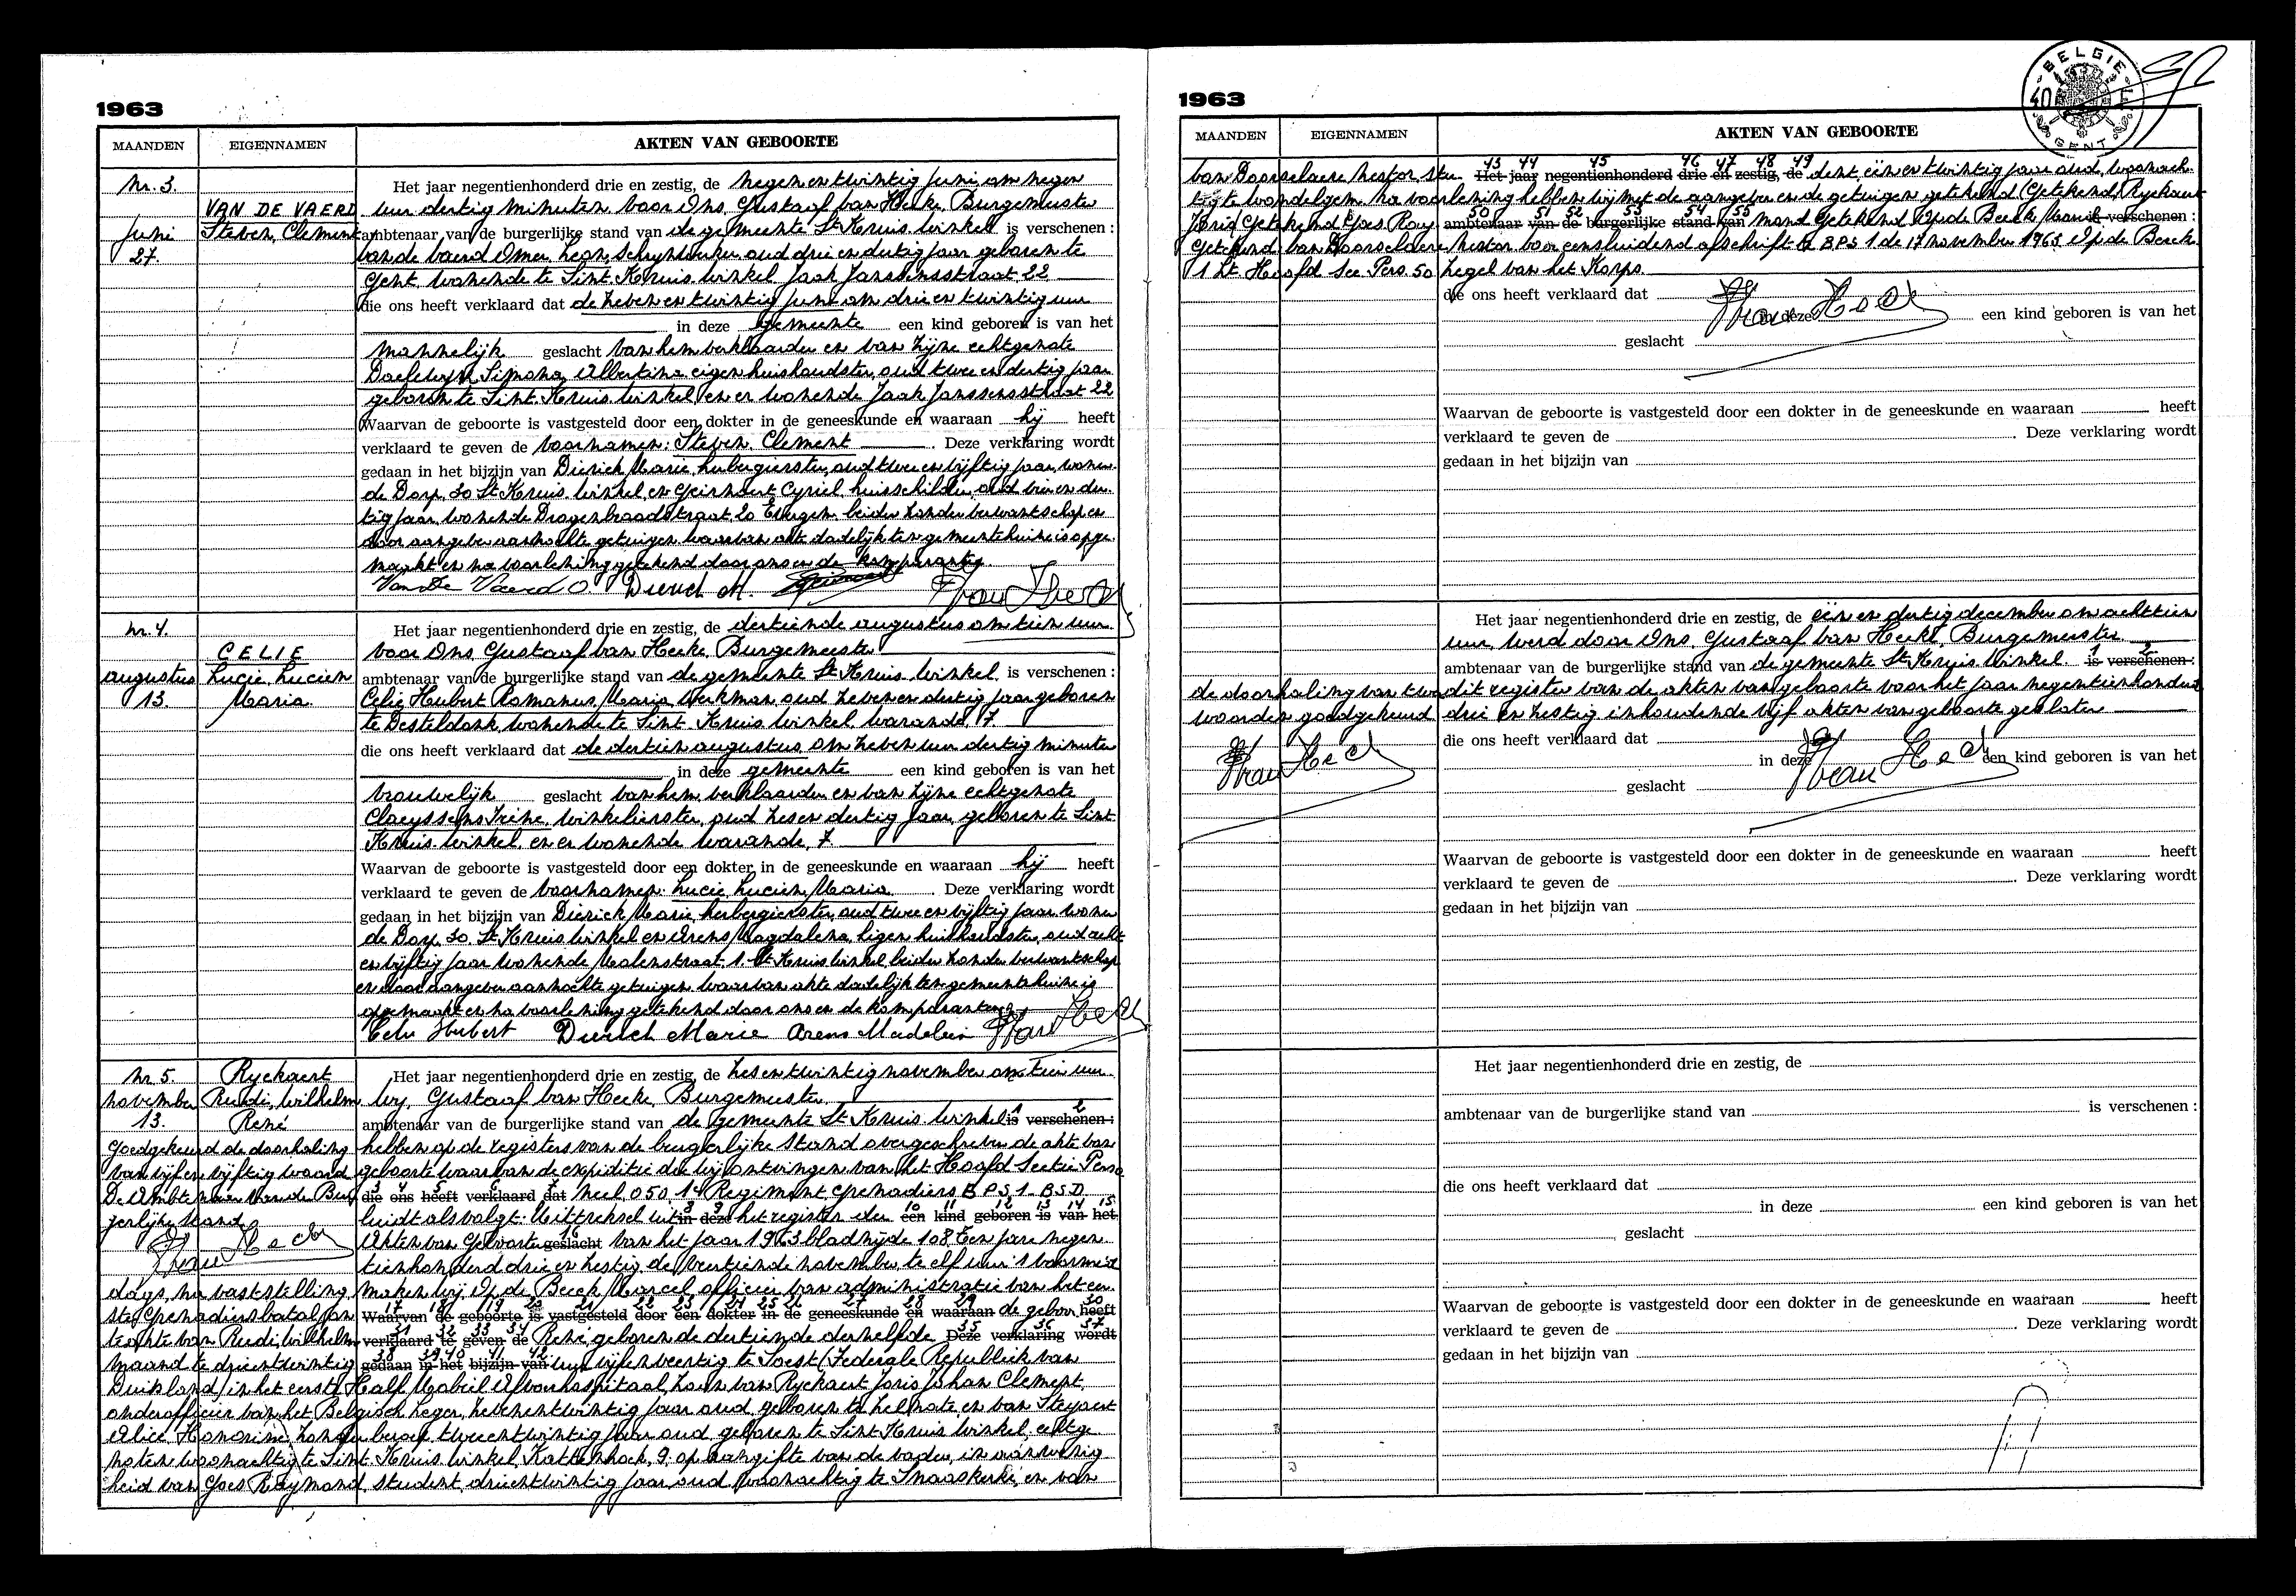 1963
MAANDEN EIGENNAMEN AKTEN VAN GEBOORTE
Nr. 3. Het jaar negentienhonderd drie en zestig, de negen en twintig Juni om negen
VAN DE VAERD uur dertig minuten voor Ons, Gustaaf Van Hecke, Burgemeester
Juni Steven, Clement ambtenaar van de burgerlijke stand van de gemeente St Kruis-Winkel is verschenen :
27. Van de Vaerd Omer, Leon, schrijnwerker, oud drie en dertig jaar geboren te
Gent, wonende te Sint-Kruis-Winkel, Jaak Janssensstraat 22
die ons heeft verklaard dat de zeven en twintig Juni om drie en twintig uur
in deze gemeente een kind geboren is van het
mannelijk geslacht van hem verklaarder en van zijne echtgenote
Simona, Albertina, eigen huishoudster, oud twee en dertig jaar
geboren te Sint-Kruis-Winkel en er wonende Jaak Janssensstraat 22
Waarvan de geboorte is vastgesteld door een dokter in de geneeskunde en waaraan hij heeft
verklaard te geven de voornamen: Steven, Clement. Deze verklaring wordt
gedaan in het bijzijn van Dierick Marie, herbergierster, oud twee en vijftig jaar, wonen-
de Dorp, 30 St Kruis-Winkel en Geirnaert Cyriel, huisschilder, oud vier en der-
tig jaar, wonende Drogenbroodstraat 20 Evergem, beiden zonder verwantschap en
door aangever aanzochte getuigen, waarvan akte dadelijk ten gemeentehuize is opge-
maakt en na voorlezing getekend door ons en de komparanten.
Van De Vaerd O. Dierick M.
Nr. 4. Het jaar negentienhonderd drie en zestig, de dertiende augustus om tien uur
CELIE voor Ons Gustaaf Van Hecke, Burgemeester
augustus Lucie, Lucien ambtenaar van de burgerlijke stand van de gemeente St Kruis-Winkel is verschenen :
13. Maria. Celie Hubert Romanus, Maria, werkman, oud zeven en dertig jaar geboren
te Desteldonk, wonende te Sint-Kruis-Winkel, Warande, 7.
die ons heeft verklaard dat de dertien augustus om zeven uur dertig minuten
in deze gemeente een kind geboren is van het
vrouwelijk geslacht van hem verklaarder en van zijne echtgenote
Claeyssens Irène, winkelierster, oud zes en dertig jaar, geboren te Sint-
Kruis-Winkel, en er wonende Warande, 7
Waarvan de geboorte is vastgesteld door een dokter in de geneeskunde en waaraan hij heeft
verklaard te geven de voornamen: Lucie, Lucien, Maria. Deze verklaring wordt
gedaan in het bijzijn van Dierick Marie, herbergierster, oud twee en vijftig jaar, wonen-
de Dorp, 30. St Kruis Winkel en Arens Magdalena, eigen huishoudster, oud acht
en vijftig jaar wonende Molenstraat, 1. St Kruis Winkel, beiden zonder verwantschap
en door aangever aanzochte getuigen, waarvan akte dadelijk ten gemeentehuize is
opgemaakt en na voorlezing getekend door ons en de komparanten.
Celie Hubert Dierick Marie Arens Madeleine
Nr. 5. Ryckaert Het jaar negentienhonderd drie en zestig, de zes en twintig november om tien uur
november Rudi, Wilhelm wij, Gustaaf Van Hecke, Burgemeester
13. René ambtenaar van de burgerlijke stand van de gemeente St Kruis-Winkel is verschenen :
Goedgekeurd de doorhaling hebben op de registers van de burgerlijke stand overgeschreven de akte van
van vijf en vijftig woorden geboorte waarvan de expeditie die wij ontvingen van het Hoofd Sectie Perso
De Ambtenaar van de Bur- die ons heeft verklaard dat neel, 050, 1e Regiment Grenadiers B P S 1 - B S D
gerlijke stand luidt als volgt: Uittreksel uit in deze het register der een kind geboren is van het
Akten van Geboorte geslacht van het jaar 1963 bladzijde 108 Een jare negen-
tienhonderd drie en zestig, de veertiende november te elf uur 's voormid-
dags, na vaststelling, maken wij Op de Beeck Marcel, officier van administratie van het eer-
ste Grenadiersbataljon Waarvan de geboorte is vastgesteld door een dokter in de geneeskunde en waaraan de geboor heeft
teakte van Rudi, Wilhelm verklaard te geven de René, geboren de dertiende derzelfde Deze verklaring wordt
maand te drieëntwintig gedaan in het bijzijn van uur vijfenveertig te Soest (Federale Republiek van
Duitsland) in het eerste Half Mobiel hospitaal, zoon van Ryckaert Joris Johan Clement,
onderofficier van het Belgisch leger, zevenentwintig jaar oud, geboren te Zelzate en van Steyaert
Alice Honorine, zonder beroep, tweeentwintig jaar oud, geboren te Sint-Kruis-Winkel, echtge-
noten woonachtig te Sint-Kruis-Winkel, Kattenhoek, 9, op aangifte van de vader, in aanwezig-
heid van Goes Raymond, student, drieëntwintig jaar oud, woonachtig te Snaaskerke, en van
1963
BELGIE
GENT
MAANDEN EIGENNAMEN AKTEN VAN GEBOORTE
Van Doorselaere Nestor, stu- Het jaar negentienhonderd drie en zestig, de dent, één en twintig jaar oud, woonach-
tig te Wondelgem. Na voorlezing hebben wij met de aangever en de getuigen getekend (Getekend) Ryckaert
Joris Getekend Goes Ray- ambtenaar van de burgerlijke stand van mond Getekend Op de Beeck Marcel is verschenen :
Getekend Van Doorselaere Nestor voor eensluidend afschrift te BPS 1 de 17 november 1963 Op de Beeck
1 Lt. Hoofd Sec Pers. 50 zegel van het Korps.
die ons heeft verklaard dat
in deze een kind geboren is van het
geslacht
Waarvan de geboorte is vastgesteld door een dokter in de geneeskunde en waaraan heeft
verklaard te geven de . Deze verklaring wordt
gedaan in het bijzijn van
Het jaar negentienhonderd drie en zestig, de één en dertig december om achttien
uur, werd door Ons, Gustaaf Van Hecke, Burgemeester
ambtenaar van de burgerlijke stand van de gemeente St Kruis-Winkel. is verschenen :
de doorhaling van twee dit register van de akten van geboorte voor het jaar negentienhonderd
woorden goedgekeurd drie en zestig inhoudende vijf akten van geboorte gesloten
die ons heeft verklaard dat
in deze een kind geboren is van het
geslacht
Waarvan de geboorte is vastgesteld door een dokter in de geneeskunde en waaraan heeft
verklaard te geven de . Deze verklaring wordt
gedaan in het bijzijn van
Het jaar negentienhonderd drie en zestig, de
ambtenaar van de burgerlijke stand van is verschenen :
die ons heeft verklaard dat
in deze een kind geboren is van het
geslacht
Waarvan de geboorte is vastgesteld door een dokter in de geneeskunde en waaraan heeft
verklaard te geven de . Deze verklaring wordt
gedaan in het bijzijn van